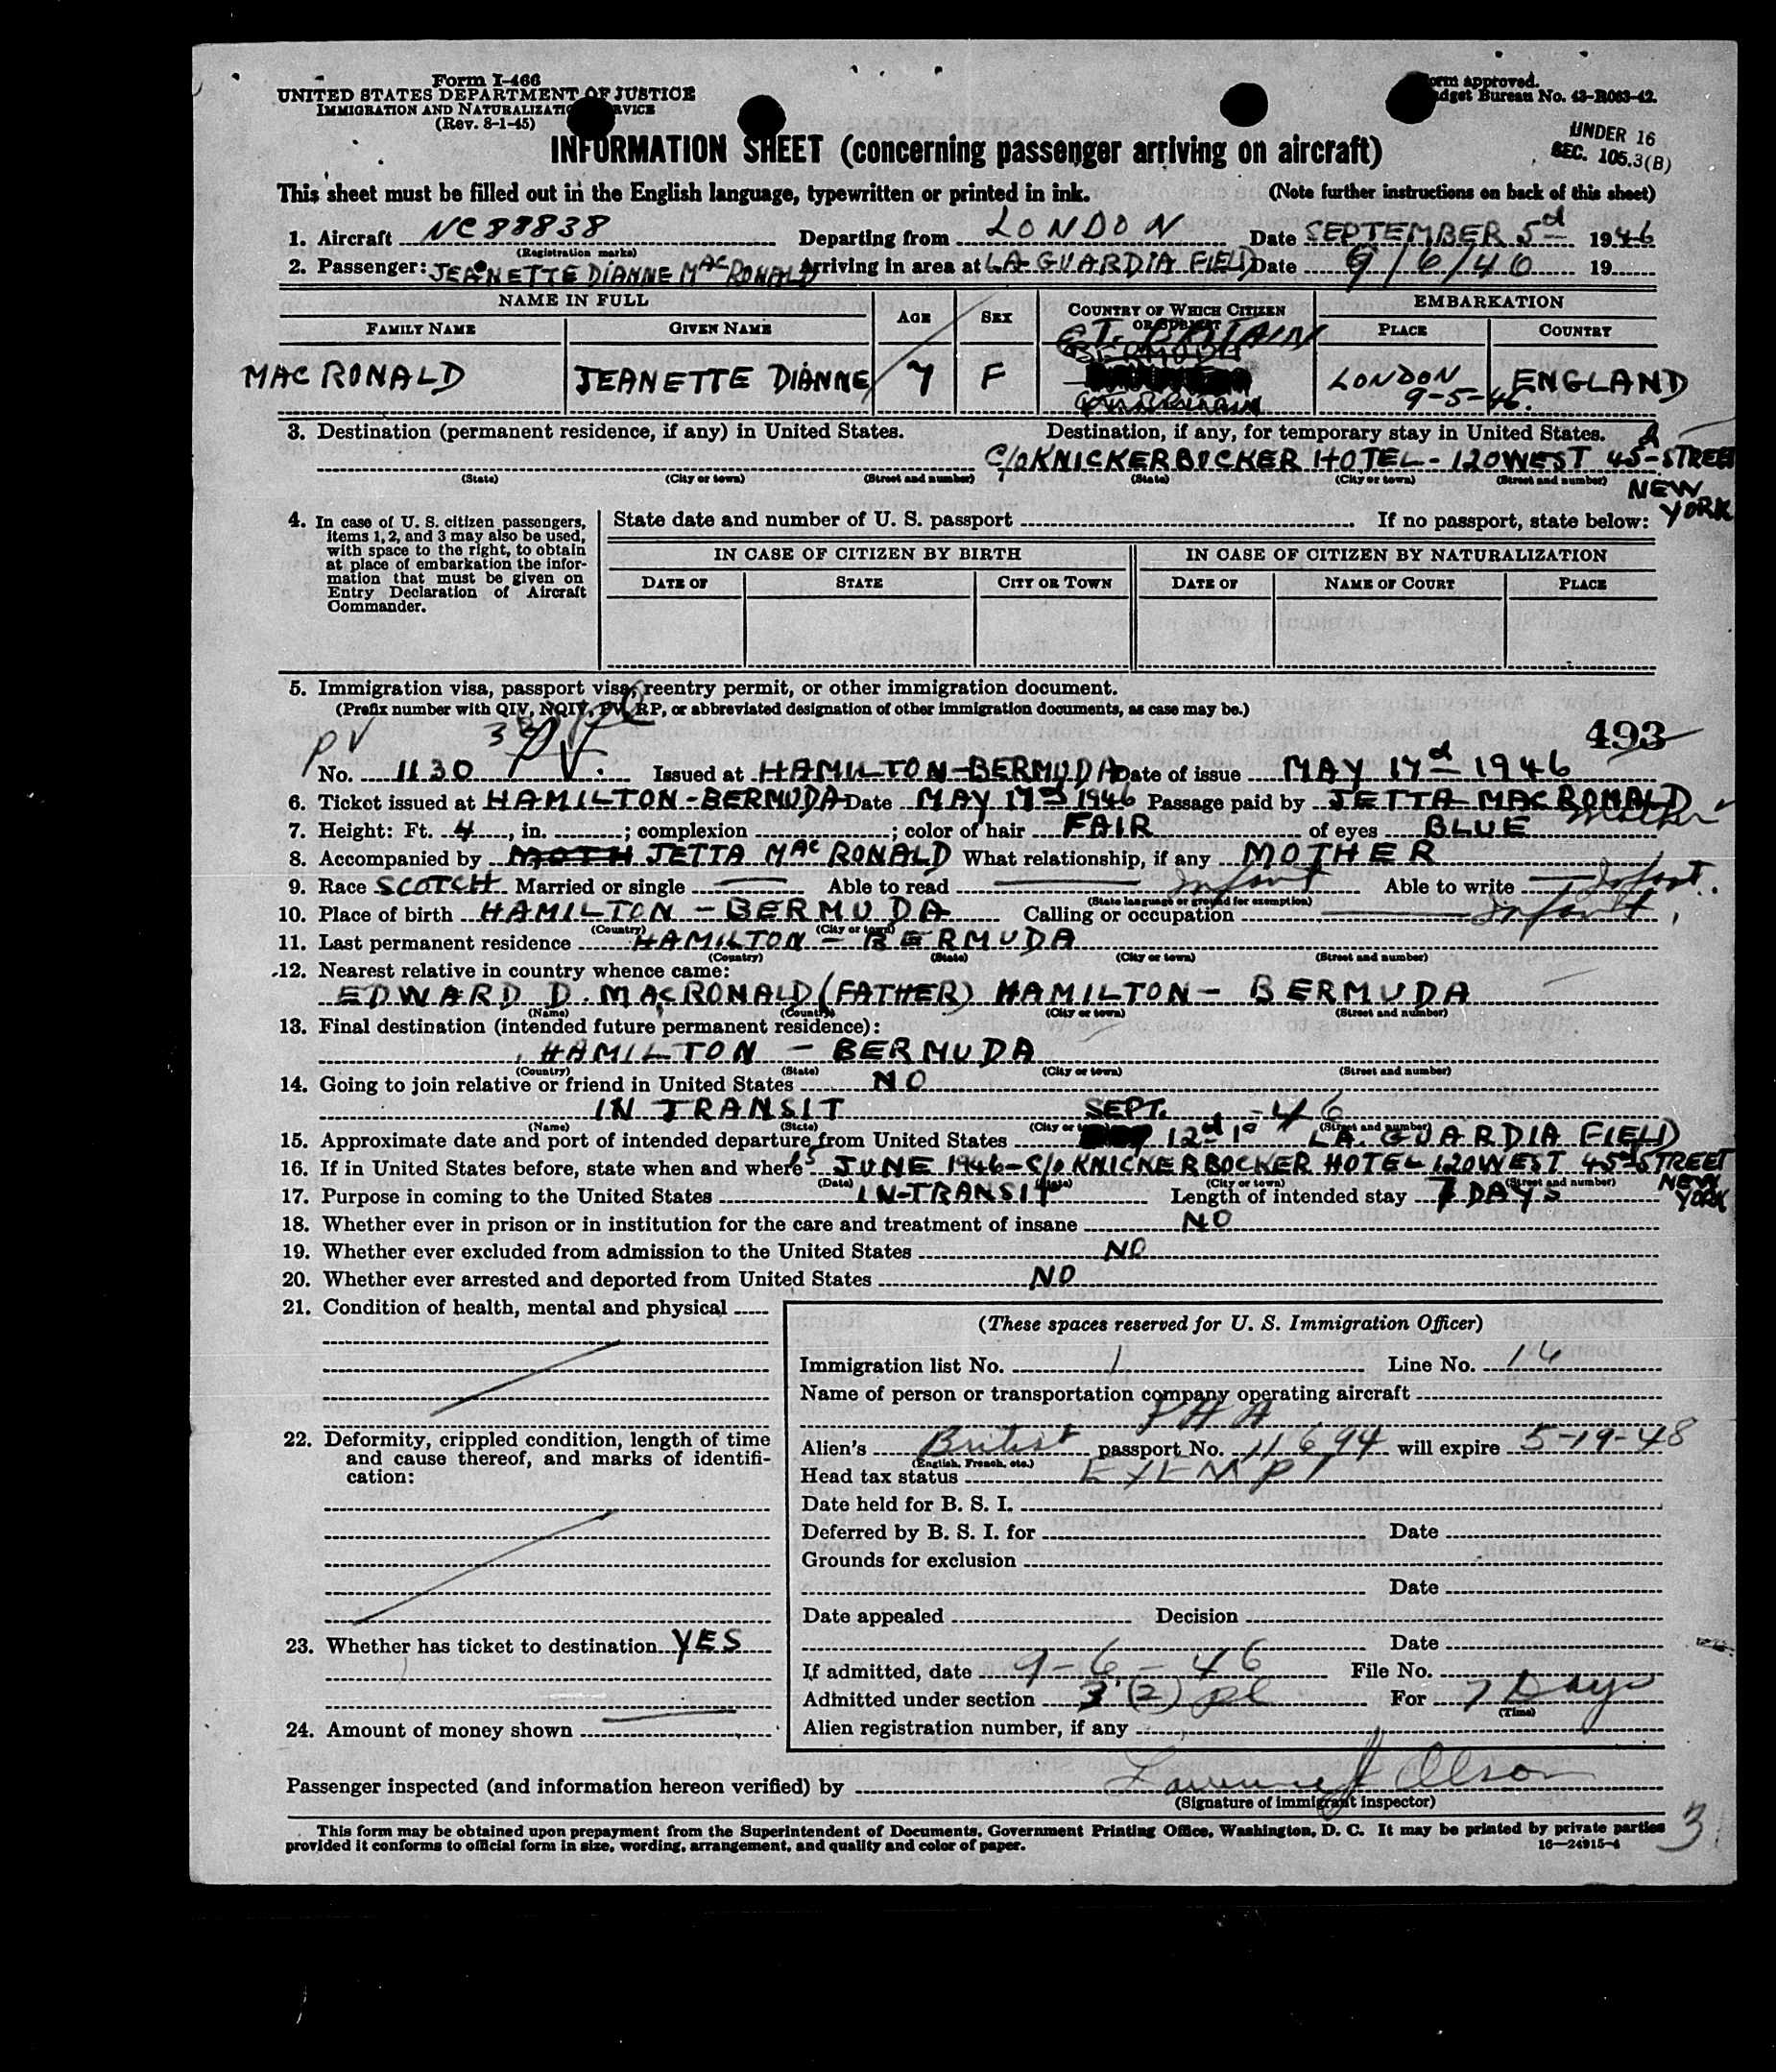 Form I-466
UNITED STATES DEPARTMENT OF JUSTICE
IMMIGRATION AND NATURALIZATION SERVICE
(Rev. 8-1-45)
Form approved.
Budget Bureau No. 43-R063-42.
UNDER 16
SEC. 105.3(B)
INFORMATION SHEET (concerning passenger arriving on aircraft)
This sheet must be filled out in the English language, typewritten or printed in ink. (Note further instructions on back of this sheet)
1. Aircraft NC 88838 Departing from LONDON Date SEPTEMBER 5d 1946
(Registration marks)
2. Passenger: JEANETTE DIANNE MACRONALD Arriving in area at LA GUARDIA FIELD Date 9/6/46 19
NAME IN FULL AGE SEX COUNTRY OF WHICH CITIZEN OR SUBJECT EMBARKATION
FAMILY NAME GIVEN NAME PLACE COUNTRY
GT. BRITAIN
BERMUDA
MAC RONALD JEANETTE DIANNE 7 F LONDON ENGLAND
9-5-46.
3. Destination (permanent residence, if any) in United States. Destination, if any, for temporary stay in United States.
C/O KNICKERBOCKER HOTEL - 120 WEST 45 - STREET
(State) (City or town) (Street and number) (State) (City or town) (Street and number)
NEW YORK
4. In case of U. S. citizen passengers, items 1, 2, and 3 may also be used, with space to the right, to obtain at place of embarkation the information that must be given on Entry Declaration of Aircraft Commander.
State date and number of U. S. passport If no passport, state below:
IN CASE OF CITIZEN BY BIRTH IN CASE OF CITIZEN BY NATURALIZATION
DATE OF STATE CITY OR TOWN DATE OF NAME OF COURT PLACE
5. Immigration visa, passport visa, reentry permit, or other immigration document.
(Prefix number with QIV, NQIV, PV, RP, or abbreviated designation of other immigration documents, as case may be.)
493
PV
No. 1130 PV. Issued at HAMILTON - BERMUDA Date of issue MAY 17d 1946
6. Ticket issued at HAMILTON - BERMUDA Date MAY 17d 1946 Passage paid by JETTA MACRONALD
Mother
7. Height: Ft. 4, in. ; complexion ; color of hair FAIR of eyes BLUE
8. Accompanied by MOTH JETTA MAC RONALD What relationship, if any MOTHER
9. Race SCOTCH Married or single — Able to read — Infant Able to write — Infant.
(State language or ground for exemption)
10. Place of birth HAMILTON - BERMUDA Calling or occupation — Infant
(Country) (City or town)
11. Last permanent residence HAMILTON - BERMUDA
(Country) (State) (City or town) (Street and number)
12. Nearest relative in country whence came:
EDWARD D. MACRONALD (FATHER) HAMILTON - BERMUDA
(Name) (Country) (City or town) (Street and number)
13. Final destination (intended future permanent residence):
HAMILTON - BERMUDA
(Country) (State) (City or town) (Street and number)
14. Going to join relative or friend in United States NO
IN TRANSIT SEPT. - 46
(Name) (State) (City or town) (Street and number)
15. Approximate date and port of intended departure from United States 12d 19 LA GUARDIA FIELD
16. If in United States before, state when and where JUNE 1946 - C/O KNICKERBOCKER HOTEL - 120 WEST 45d STREET
(Date) (State) (City or town) (Street and number)
NEW YORK
17. Purpose in coming to the United States IN-TRANSIT Length of intended stay 7 DAYS
18. Whether ever in prison or in institution for the care and treatment of insane NO
19. Whether ever excluded from admission to the United States NO
20. Whether ever arrested and deported from United States NO
21. Condition of health, mental and physical
22. Deformity, crippled condition, length of time and cause thereof, and marks of identification:
23. Whether has ticket to destination YES
24. Amount of money shown
(These spaces reserved for U. S. Immigration Officer)
Immigration list No. 1 Line No. 14
Name of person or transportation company operating aircraft
PAA
Alien's British passport No. 11694 will expire 5-19-48
(English, French, etc.)
Head tax status EXEMPT
Date held for B. S. I.
Deferred by B. S. I. for Date
Grounds for exclusion
Date
Date appealed Decision
Date
If admitted, date 9-6-46 File No.
Admitted under section 3(2) pl For 7 Days
(Time)
Alien registration number, if any
Passenger inspected (and information hereon verified) by Lawrence J Olson
(Signature of immigrant inspector)
This form may be obtained upon prepayment from the Superintendent of Documents, Government Printing Office, Washington, D. C. It may be printed by private parties
provided it conforms to official form in size, wording, arrangement, and quality and color of paper. 16—24915-4
3